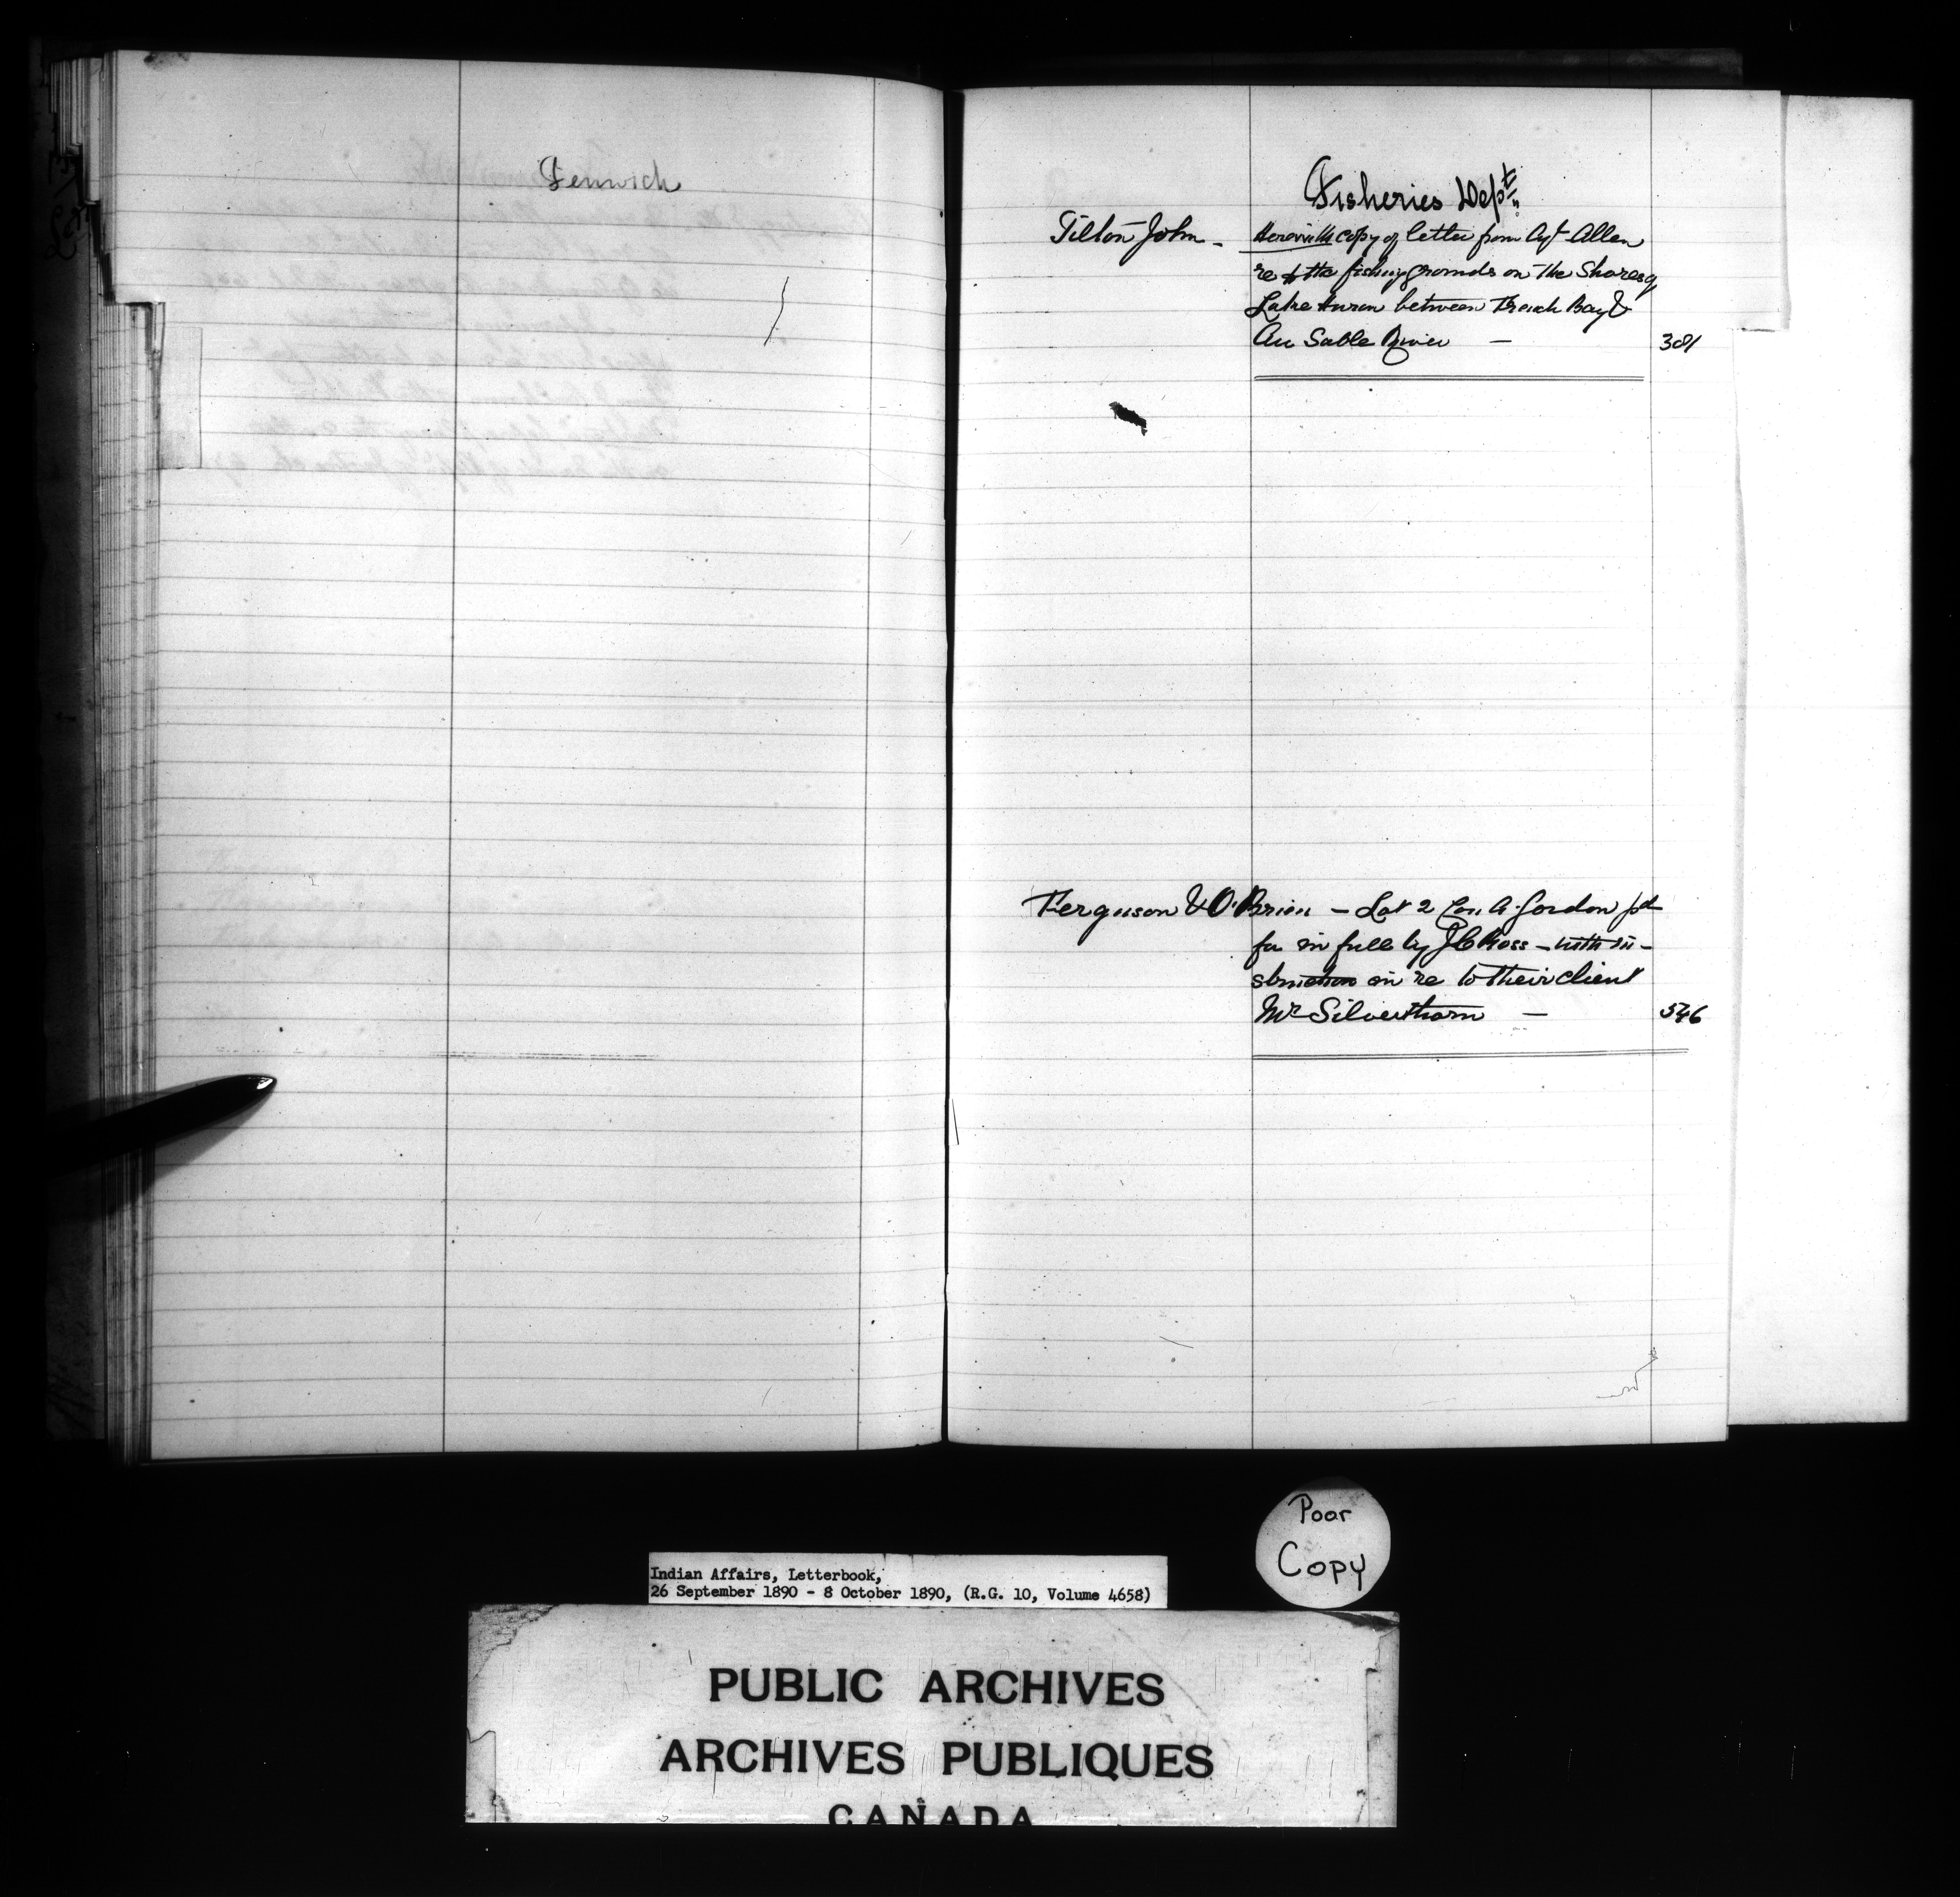 Fenwick
Fisheries Dept.
Tilton John - Herewith copy of letter from Agt Allen
re the fishing grounds on the Shores of
Lake Huron between French Bay &
Au Sable River — 381
Ferguson & O'Brien - Lot 2 Con A. Gordon pd
for in full by J C Ross - with in-
struction in re to their client
Mr Silverthorn — 546
Poor
Copy
Indian Affairs, Letterbook,
26 September 1890 - 8 October 1890, (R.G. 10, Volume 4658)
PUBLIC ARCHIVES
ARCHIVES PUBLIQUES
CANADA